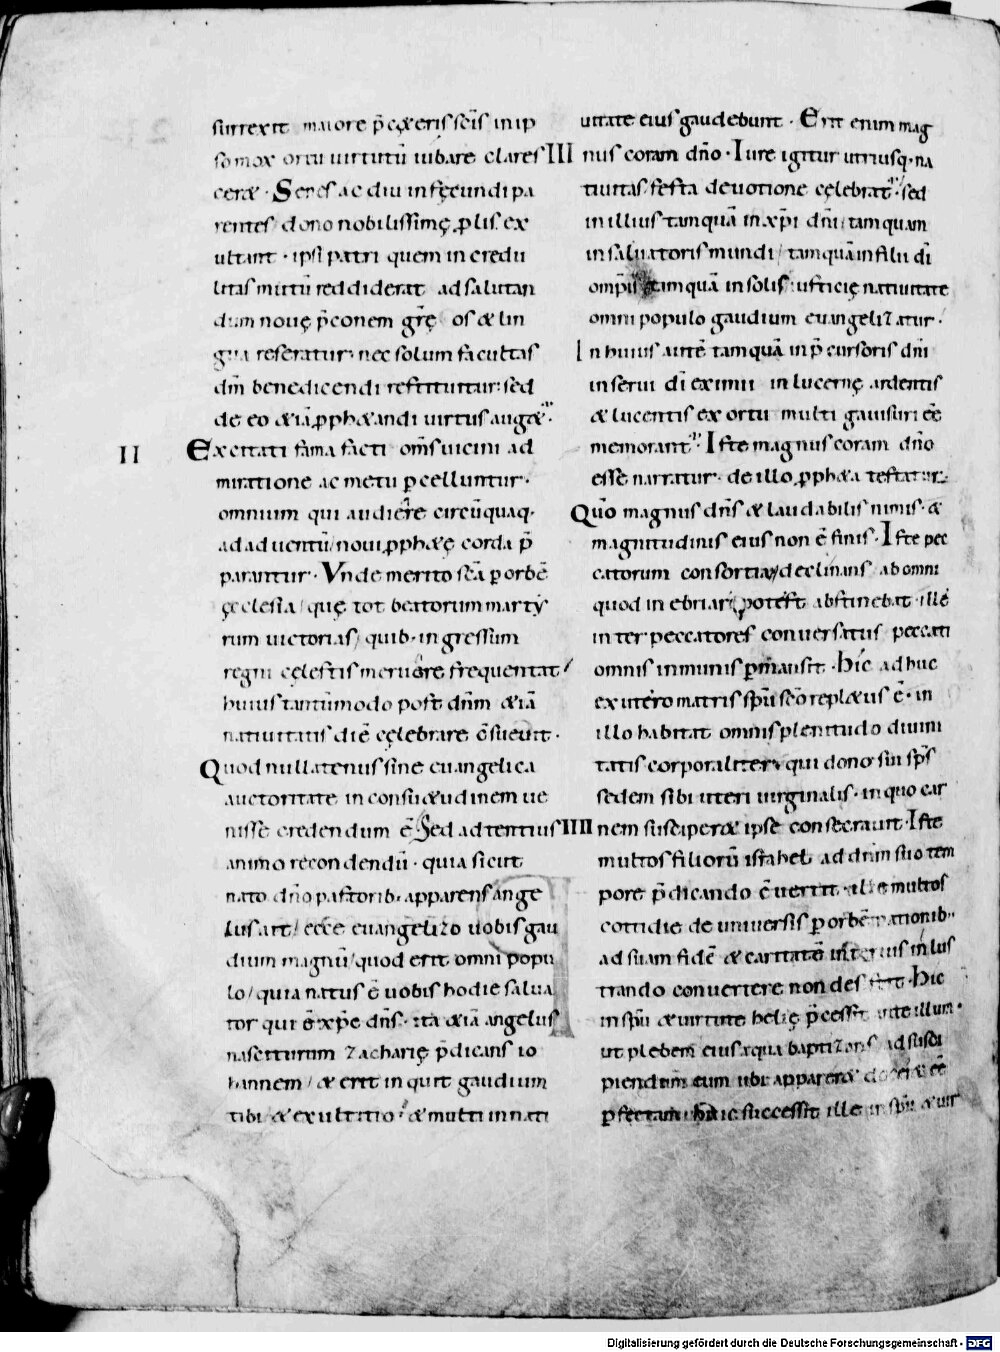 surrexit maiore p̄ cęteris scīs in ip
so mox ortu uirtutū iubare clares
ceret · Senes ac diu infęcundi pa
rentes / dono nobilissimę ꝓlis ex
ultant · ipsi patri quem in credu
litas mutū reddiderat ad salutan
dum nouę p̄conem gr̄ę os & lin
gua reseratur · nec solum facultas
dm̄ benedicendi restituitur · sed
de eo &iā ꝓph&andi uirtus aug&ur ·
II
Excitati fama facti om̄s uicini ad
miratione ac metu ꝑcelluntur ·
omnium qui audiere circūquaq·
ad aduentū noui ꝓph&ę corda p̄
parantur · Vnde merito sc̄a ꝑ orbē
ęcclesia / quę tot beatorum marty
rum uictorias / quib· ingressum
regni cęlestis meruēre frequentat /
huius tantummodo post dn̄m &iā
natiuitatis diē cęlebrare c̄sueuit ·
Quod nullatenus sine euangelica
auctoritate in consu&udinem ue
nisse credendum ē · Sed adtentius
animo recondendū · quia sicut
nato dn̄o pastorib· apparens ange
lus ait / ecce euangelizo uobis gau
dium magnū / quod erit omni popu
lo / quia natus ē uobis hodie salua
tor qui ē xp̄c dn̄s · ita &iā angelus
nasciturum zacharię p̄dicans io
hannem / & erit inquit gaudium
tibi & exultatio · & multi in nati
uitate eius gaudebunt · Erit enim mag
III nus coram dn̄o · Iure igitur utriusq· na
tiuitas festa deuotione cęlebratur · sed
in illius tamquā in xp̄i dn̄i / tamquam
in saluatoris mundi / tamquā in filii dī
omp̄is tamquā in solis iustitię natiuitate
omni populo gaudium euangelizatur ·
In huius autē tamquā in p̄cursoris dn̄i
in serui dī eximii in lucernę ardentis
& lucentis ex ortu multi gauisuri eē
memorantur · Iste magnus coram dn̄o
esse narratur · de illo ꝓph&a testatur ·
Quō magnus dn̄s & laudabilis nimis · &
magnitudinis eius non ē finis · Iste pec
catorum consortia declinans ab omni
quod inebriari potest abstinebat · ille
inter peccatores conuersatus peccati
omnis inmunis ꝑmansit · hic adhuc
ex utero matris sp̄u sc̄o repl&us ē · in
illo habitat omnis plenitudo diuini
tatis corporaliter · qui dono sui sp̄s
sedem sibi uteri uirginalis · in quo car
IIII nem susciper& ipse consecrauit · Iste
multos filiorū israhel ad dn̄m suo tem
pore p̄dicando c̄uertit · ille multos
cottidie de uniuersis ꝑ orbē nationib·
ad suam fidē & caritatē intus inlus
trando conuertere non desistit · Hic
in sp̄u & uirtute helię p̄cessit ante illum ·
ut plebem eius aqua baptizans ad susci
piendum eum ubi apparer& doceret eē
ꝑfectam · huic successit ille in sp̄u & uir
Digitalisierung gefördert durch die Deutsche Forschungsgemeinschaft - DFG